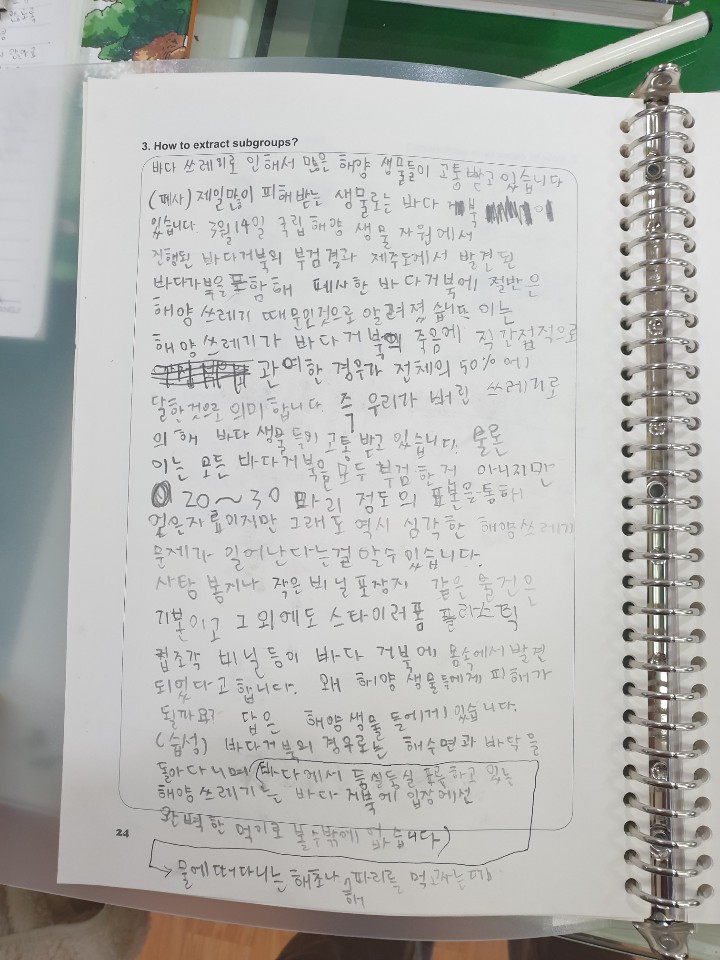 3. How to extract subgroups?
바다 쓰레기로 인해서 많은 해양 생물들이 고통 받고 있습니다
(폐사) 제일많이 피해받는 생물로는 바다 거북 이
있습니다. 3월14일 국립 해양 생물 자원에서
진행된 바다거북의 부검결과 제주도에서 발견된
바다거북을 포함해 폐사한 바다거북에 절반은
해양 쓰레기 때문인것으로 알려졌습니다 이는
해양쓰레기가 바다거북의 죽음에 직간접적으로
관여한 경우가 전체의 50%에
달한것으로 의미합니다. 즉 우리가 버린 쓰레기로
의해 바다 생물들이 고통 받고 있습니다. 물론
이는 모든 바다거북을 모두 부검한거 아니지만
20~30마리 정도의 표본을통해
얻은자료이지만 그래도 역시 심각한 해양쓰레기
문제가 일어난다는걸 알수 있습니다.
사탕 봉지나 작은 비닐 포장지 같은 물건은
기본이고 그 외에도 스타이러폼 플라스틱
컵조각 비닐 등이 바다 거북에 몸속에서 발견
되었다고합니다. 왜 해양 생물들에게 피해가
될까요? 답은 해양생물들에게 있습니다.
(습성) 바다거북의 경우로는 해수면과 바닥을
돌아다니며 (바다에서 둥실둥실 표류하고 있는
해양 쓰레기는 바다거북에 입장에선
완벽한 먹기로 볼수밖에 없습니다)
24
→ 물에떠다니는 해초나 해파리를 먹고사는데